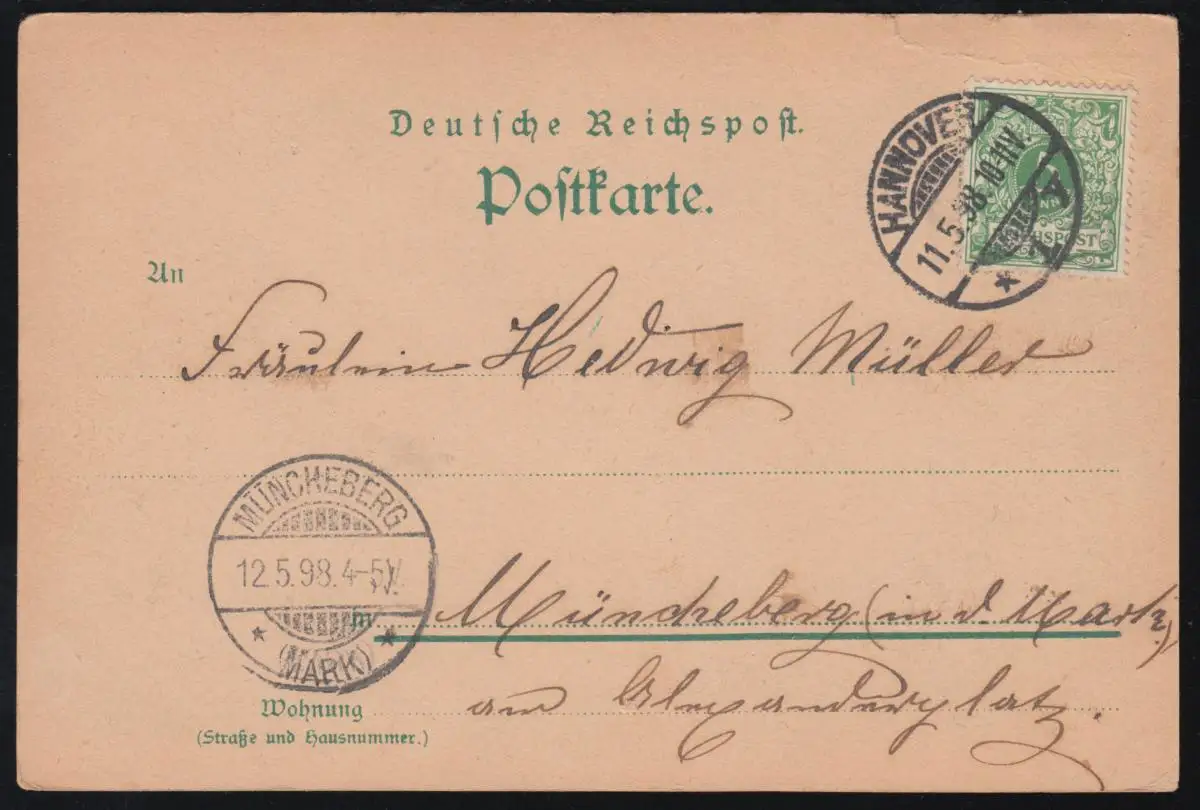 Deutsche Reichspost.
Postkarte.
HANNOVER
11.5.98. 10-11V.
* 1 *
REICHSPOST
An
Fräulein Hedwig Müller
MÜNCHEBERG
12.5.98. 4-5V.
* (MARK) *
in Müncheberg (in d. Mark)
am Alexanderplatz.
Wohnung
(Straße und Hausnummer.)